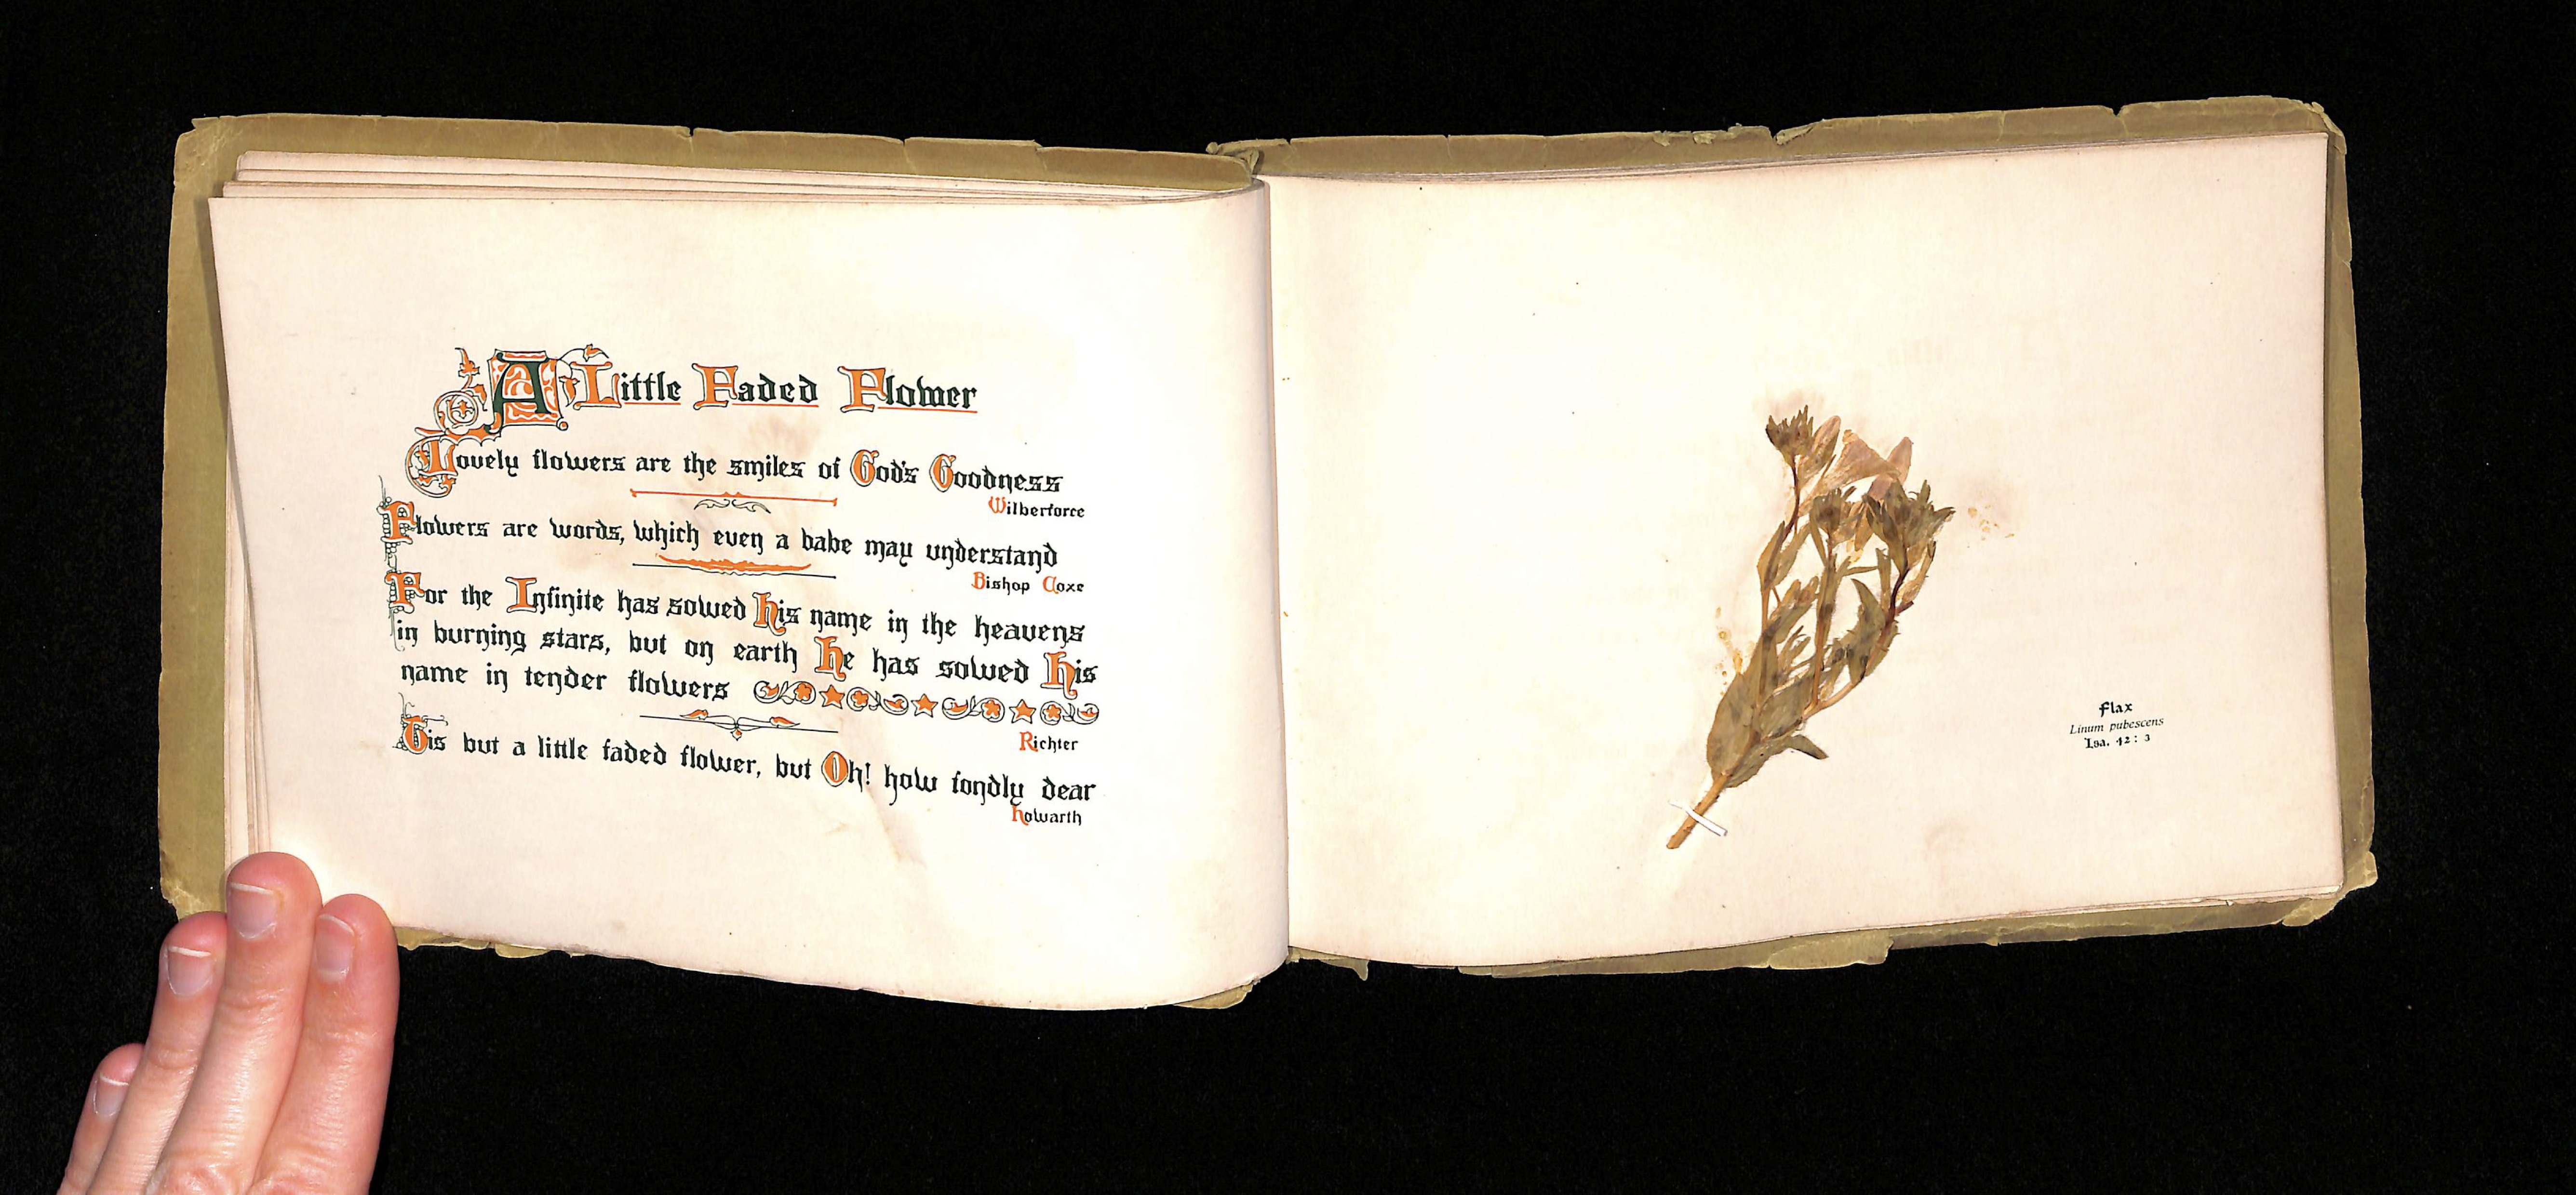 A Little Faded Flower
Lovely flowers are the smiles of God's Goodness
Wilberforce
Flowers are words, which even a babe may understand
Bishop Coxe
For the Infinite has sowed his name in the heavens
in burning stars, but on earth he has sowed his
name in tender flowers
Richter
Tis but a little faded flower, but Oh! how fondly dear
Howarth
Flax
Linum pubescens
Isa. 42:3